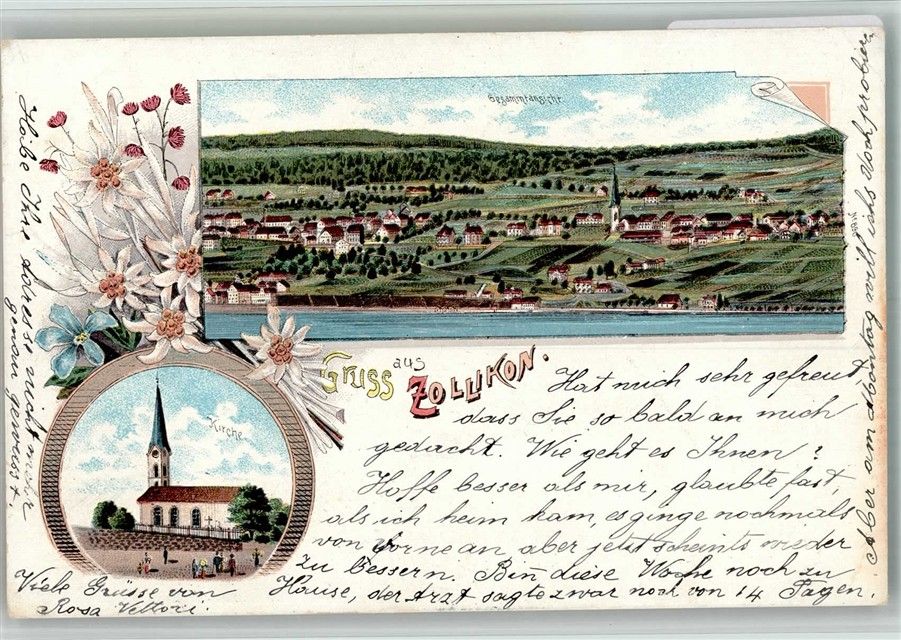 Gesammtansicht
Gruss aus Zollikon.
Kirche
Hat mich sehr gefreut
dass Sie so bald an mich
gedacht. Wie geht es Ihnen?
Hoffe besser als mir, glaubte fast,
als ich heim kam, es ginge nochmals
von vorne an aber jetzt scheints wieder
zu bessern. Bin diese Woche noch zu
Hause, der Arzt sagte zwar noch von 14 Tagen,
Aber am Montag will ichs doch probieren
Habe Ihre Adresse nicht mehr
genau gewusst,
Viele Grüsse von
Rosa Vettori.